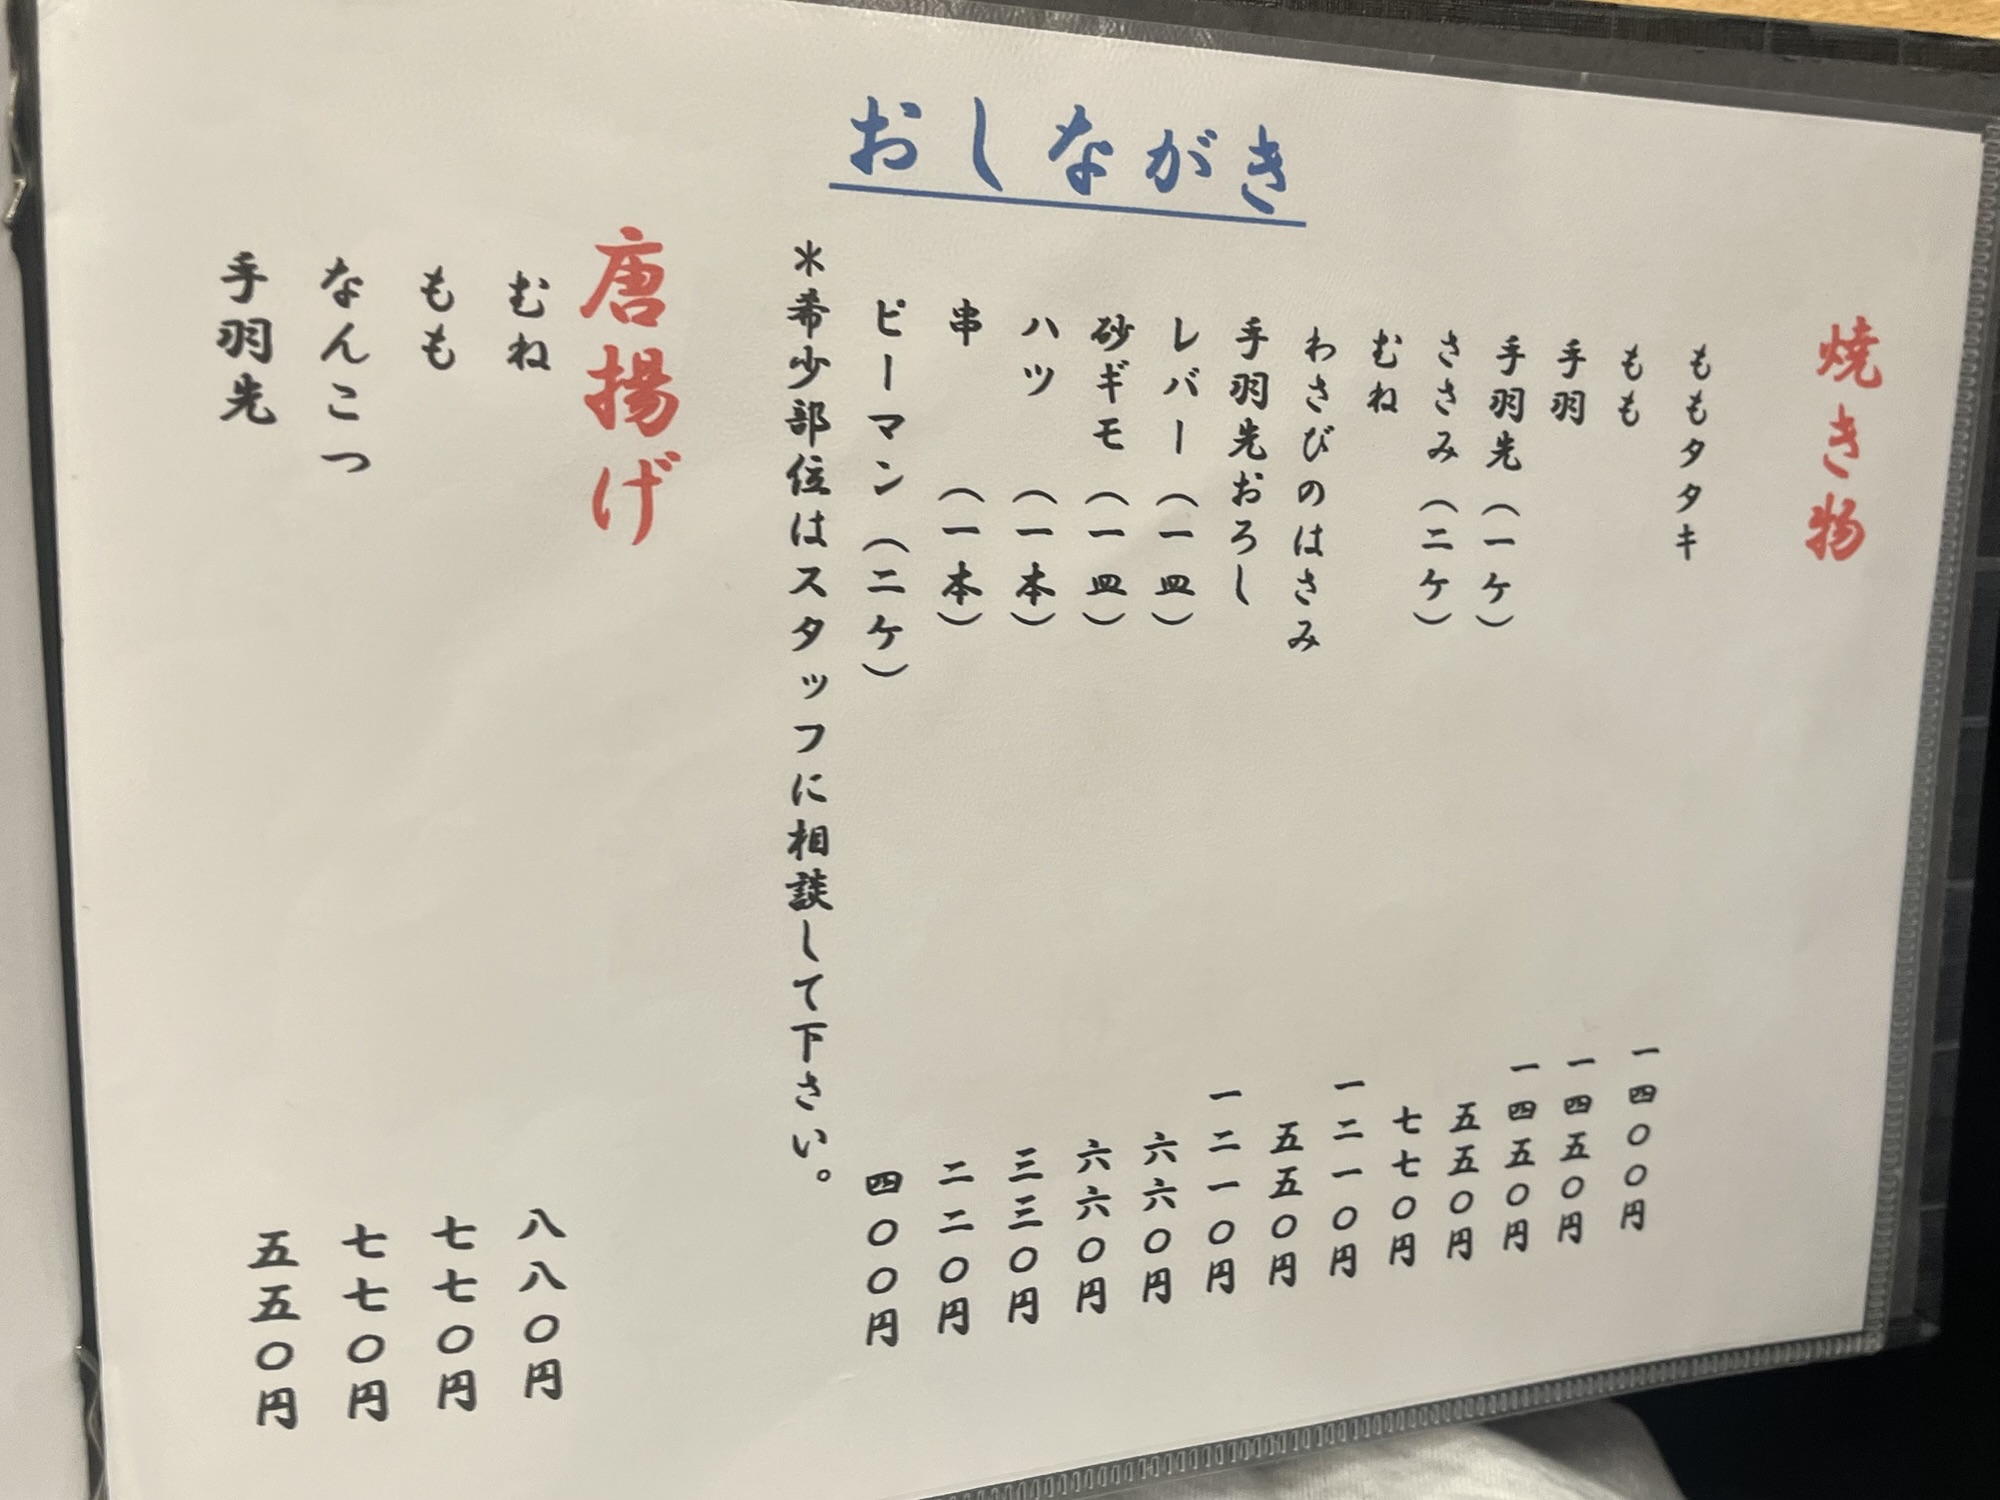 おしながき
焼き物
ももタタキ 一四〇〇円
もも 一四五〇円
手羽 一四五〇円
手羽先(一ケ) 五五〇円
ささみ(二ケ) 七七〇円
むね 一二一〇円
わさびのはさみ 五五〇円
手羽先おろし 一二一〇円
レバー(一皿) 六六〇円
砂ギモ(一皿) 六六〇円
ハツ(一本) 三三〇円
串(一本) 二二〇円
ピーマン(二ケ) 四〇〇円
*希少部位はスタッフに相談して下さい。
唐揚げ
むね 八八〇円
もも 七七〇円
なんこつ 七七〇円
手羽先 五五〇円